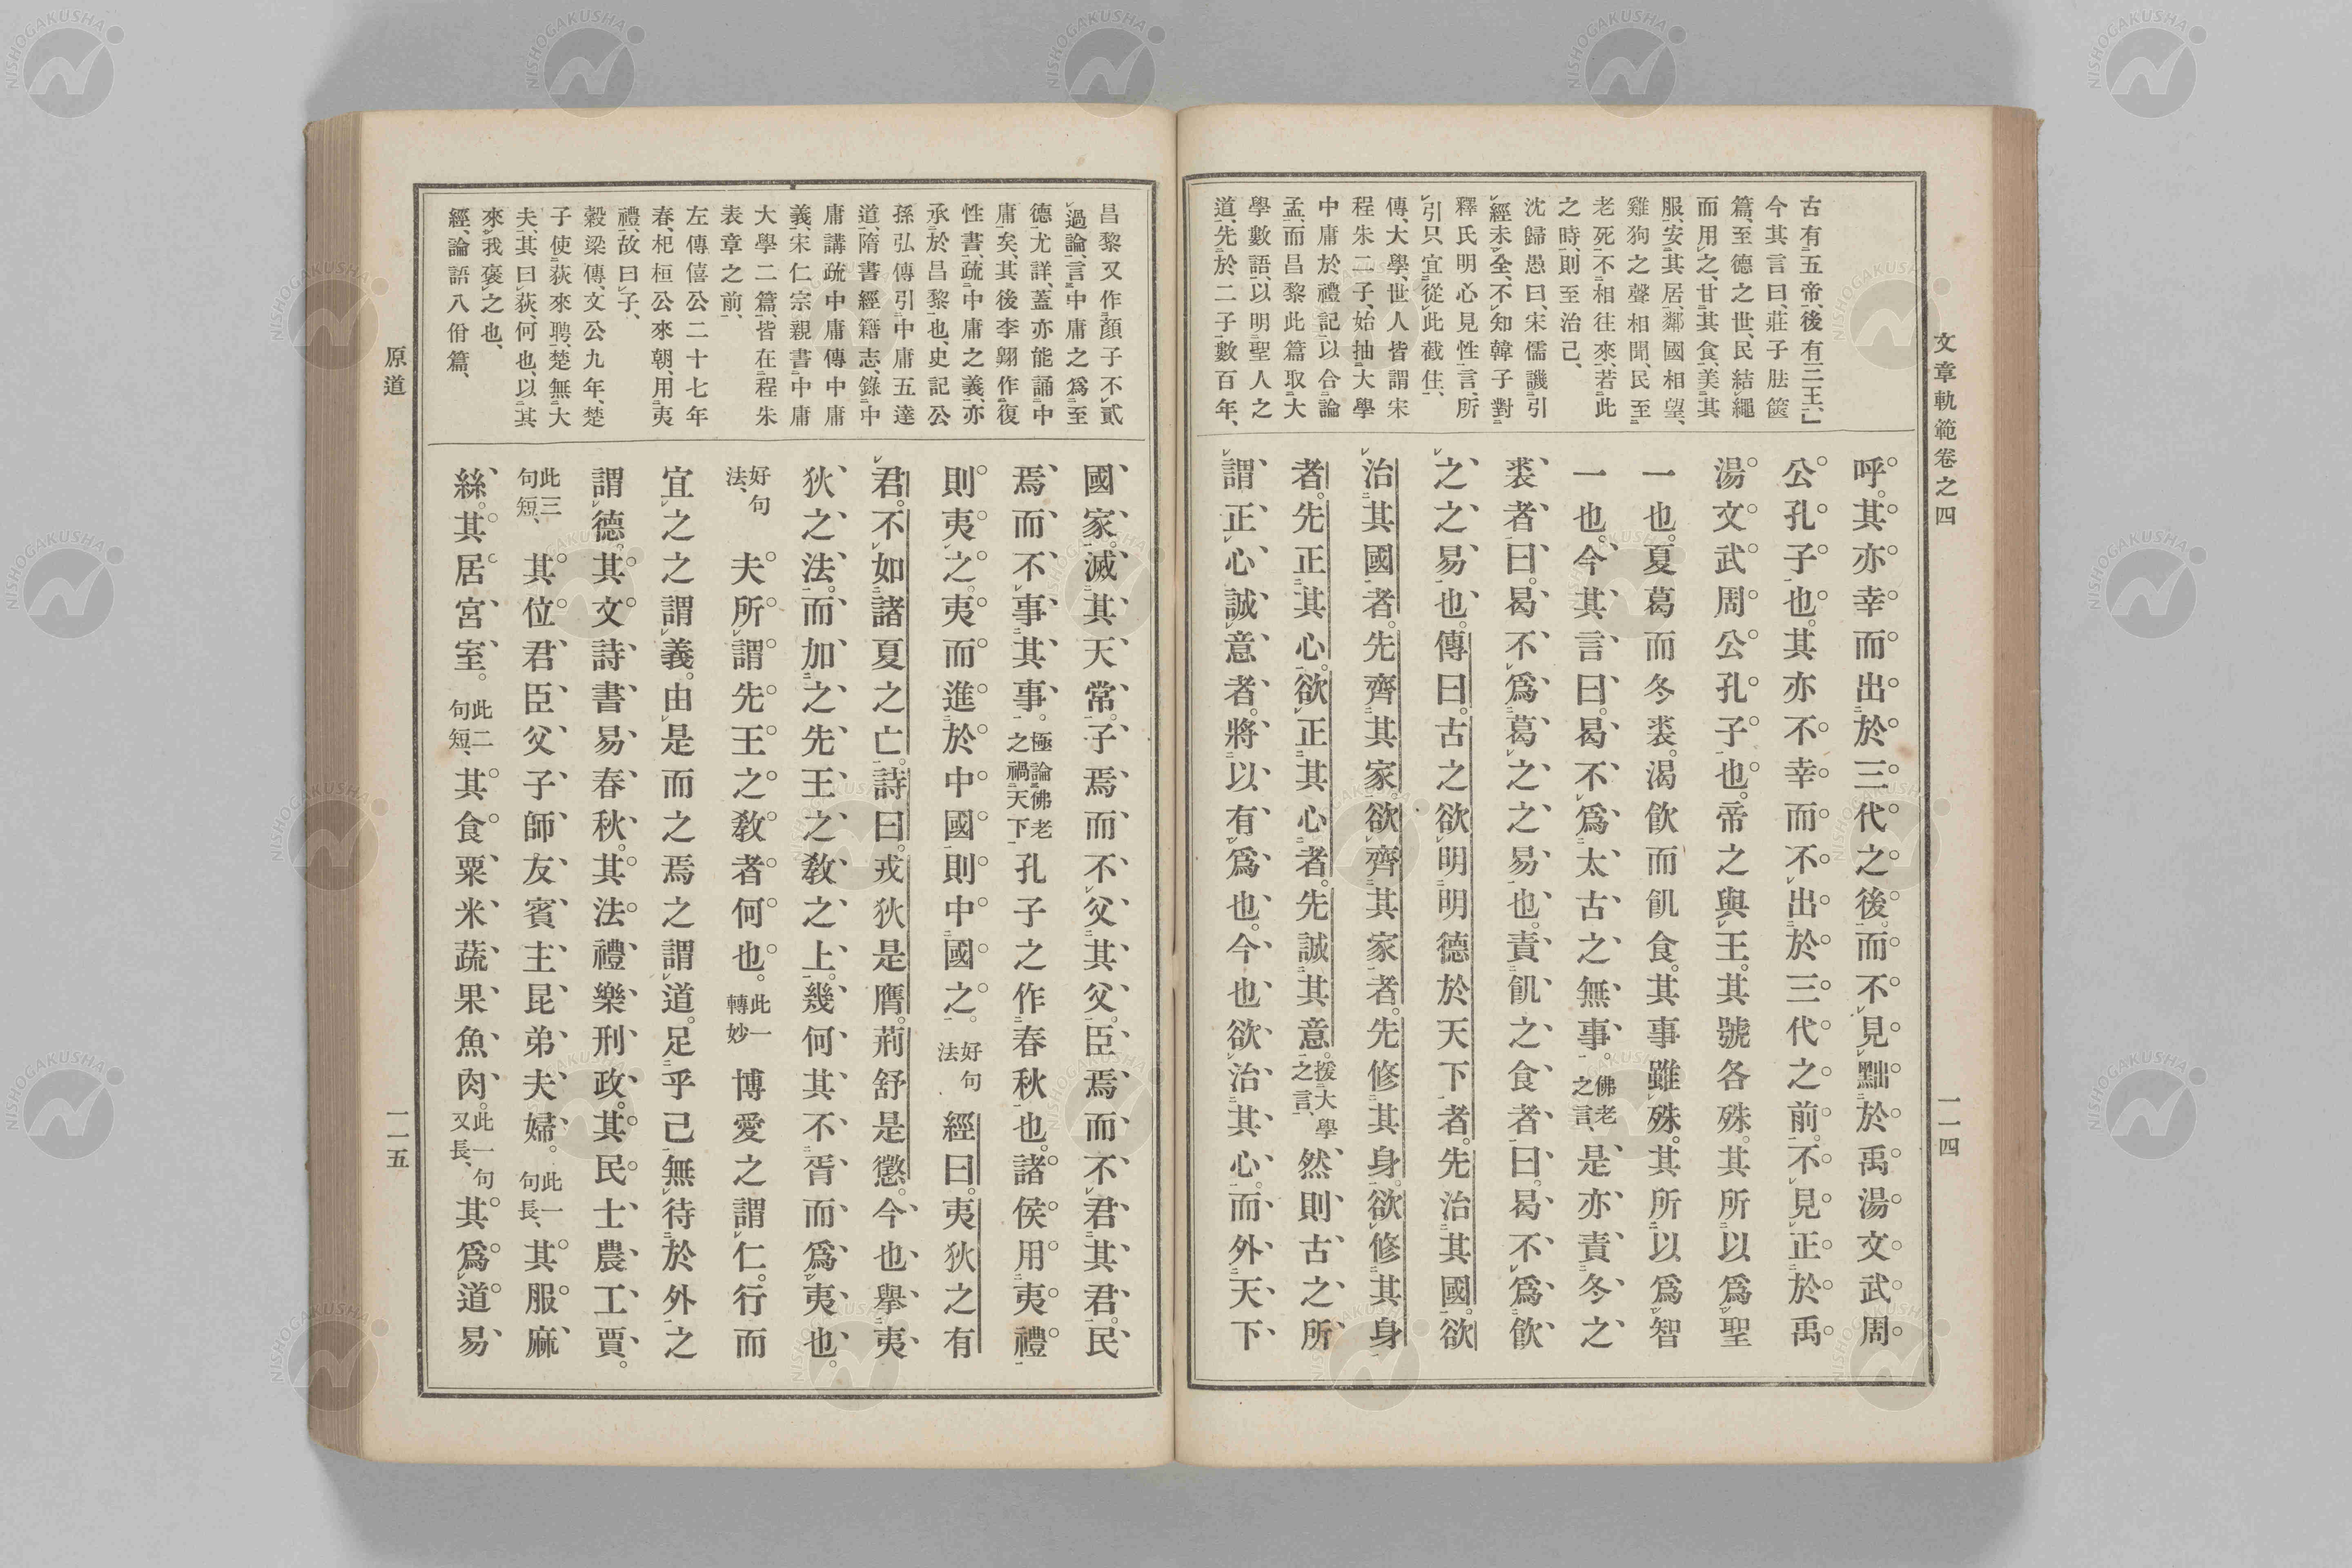 文章軌範卷之四
一一四
古有五帝、後有三王、」
今其言曰、莊子胠篋
篇、至德之世、民結繩
而用之、甘其食、美其
服、安其居、鄰國相望、
雞狗之聲相聞、民至
老死不相往來、若此
之時、則至治已、
沈歸愚曰、宋儒譏引
經未全、不知韓子對
釋氏明心見性言、所
引只宜從此截住、
傳、大學、世人皆謂宋
程朱二子、始抽大學
中庸於禮記、以合論
孟、而昌黎此篇取大
學數語、以明聖人之
道、先於二子數百年、
呼。其亦幸而出於三代之後。而不見黜於禹湯文武周
公孔子也。其亦不幸而不出於三代之前。不見正於禹
湯文武周公孔子也。帝之與王。其號各殊。其所以爲聖
一也。夏葛而冬裘。渴飮而飢食。其事雖殊。其所以爲智
一也。今其言曰。曷不爲太古之無事。佛老之言、是亦責冬之
裘者曰。曷不爲葛之之易也。責飢之食者曰。曷不爲飮
之之易也。傳曰。古之欲明明德於天下者。先治其國。欲
治其國者。先齊其家。欲齊其家者。先修其身。欲修其身
者。先正其心。欲正其心者。先誠其意。援大學之言、然則古之所
謂正心誠意者。將以有爲也。今也欲治其心。而外天下
昌黎又作顏子不貳
過論、言中庸之爲至
德尤詳、蓋亦能誦中
庸矣、其後李翶作復
性書、疏中庸之義、亦
承於昌黎也、史記公
孫弘傳引中庸五達
道、隋書經籍志、錄中
庸講疏中庸傳中庸
義、宋仁宗親書中庸
大學二篇、皆在程朱
表章之前、
左傳僖公二十七年
春、杞桓公來朝、用夷
禮、故曰子、
穀梁傳、文公九年、楚
子使荻來聘、楚無大
夫、其曰荻、何也、以其
來我褒之也、
經、論語八佾篇、
國家。滅其天常。子焉而不父其父。臣焉而不君其君。民
焉而不事其事。極論佛老之禍天下孔子之作春秋也。諸侯用夷禮
則夷之。夷而進於中國則中國之。好句法 經曰。夷狄之有
君。不如諸夏之亡。詩曰。戎狄是膺。荊舒是懲。今也擧夷
狄之法。而加之先王之敎之上。幾何其不胥而爲夷也。
好句法、 夫所謂先王之敎者何也。此一轉妙 博愛之謂仁。行而
宜之之謂義。由是而之焉之謂道。足乎己無待於外之
謂德。其文詩書易春秋。其法禮樂刑政。其民士農工賈。
此三句短、 其位君臣父子師友賓主昆弟夫婦。此一句長、其服麻
絲。其居宮室。此二句短、其食粟米蔬果魚肉。此一句又長、其爲道易
原道
一一五